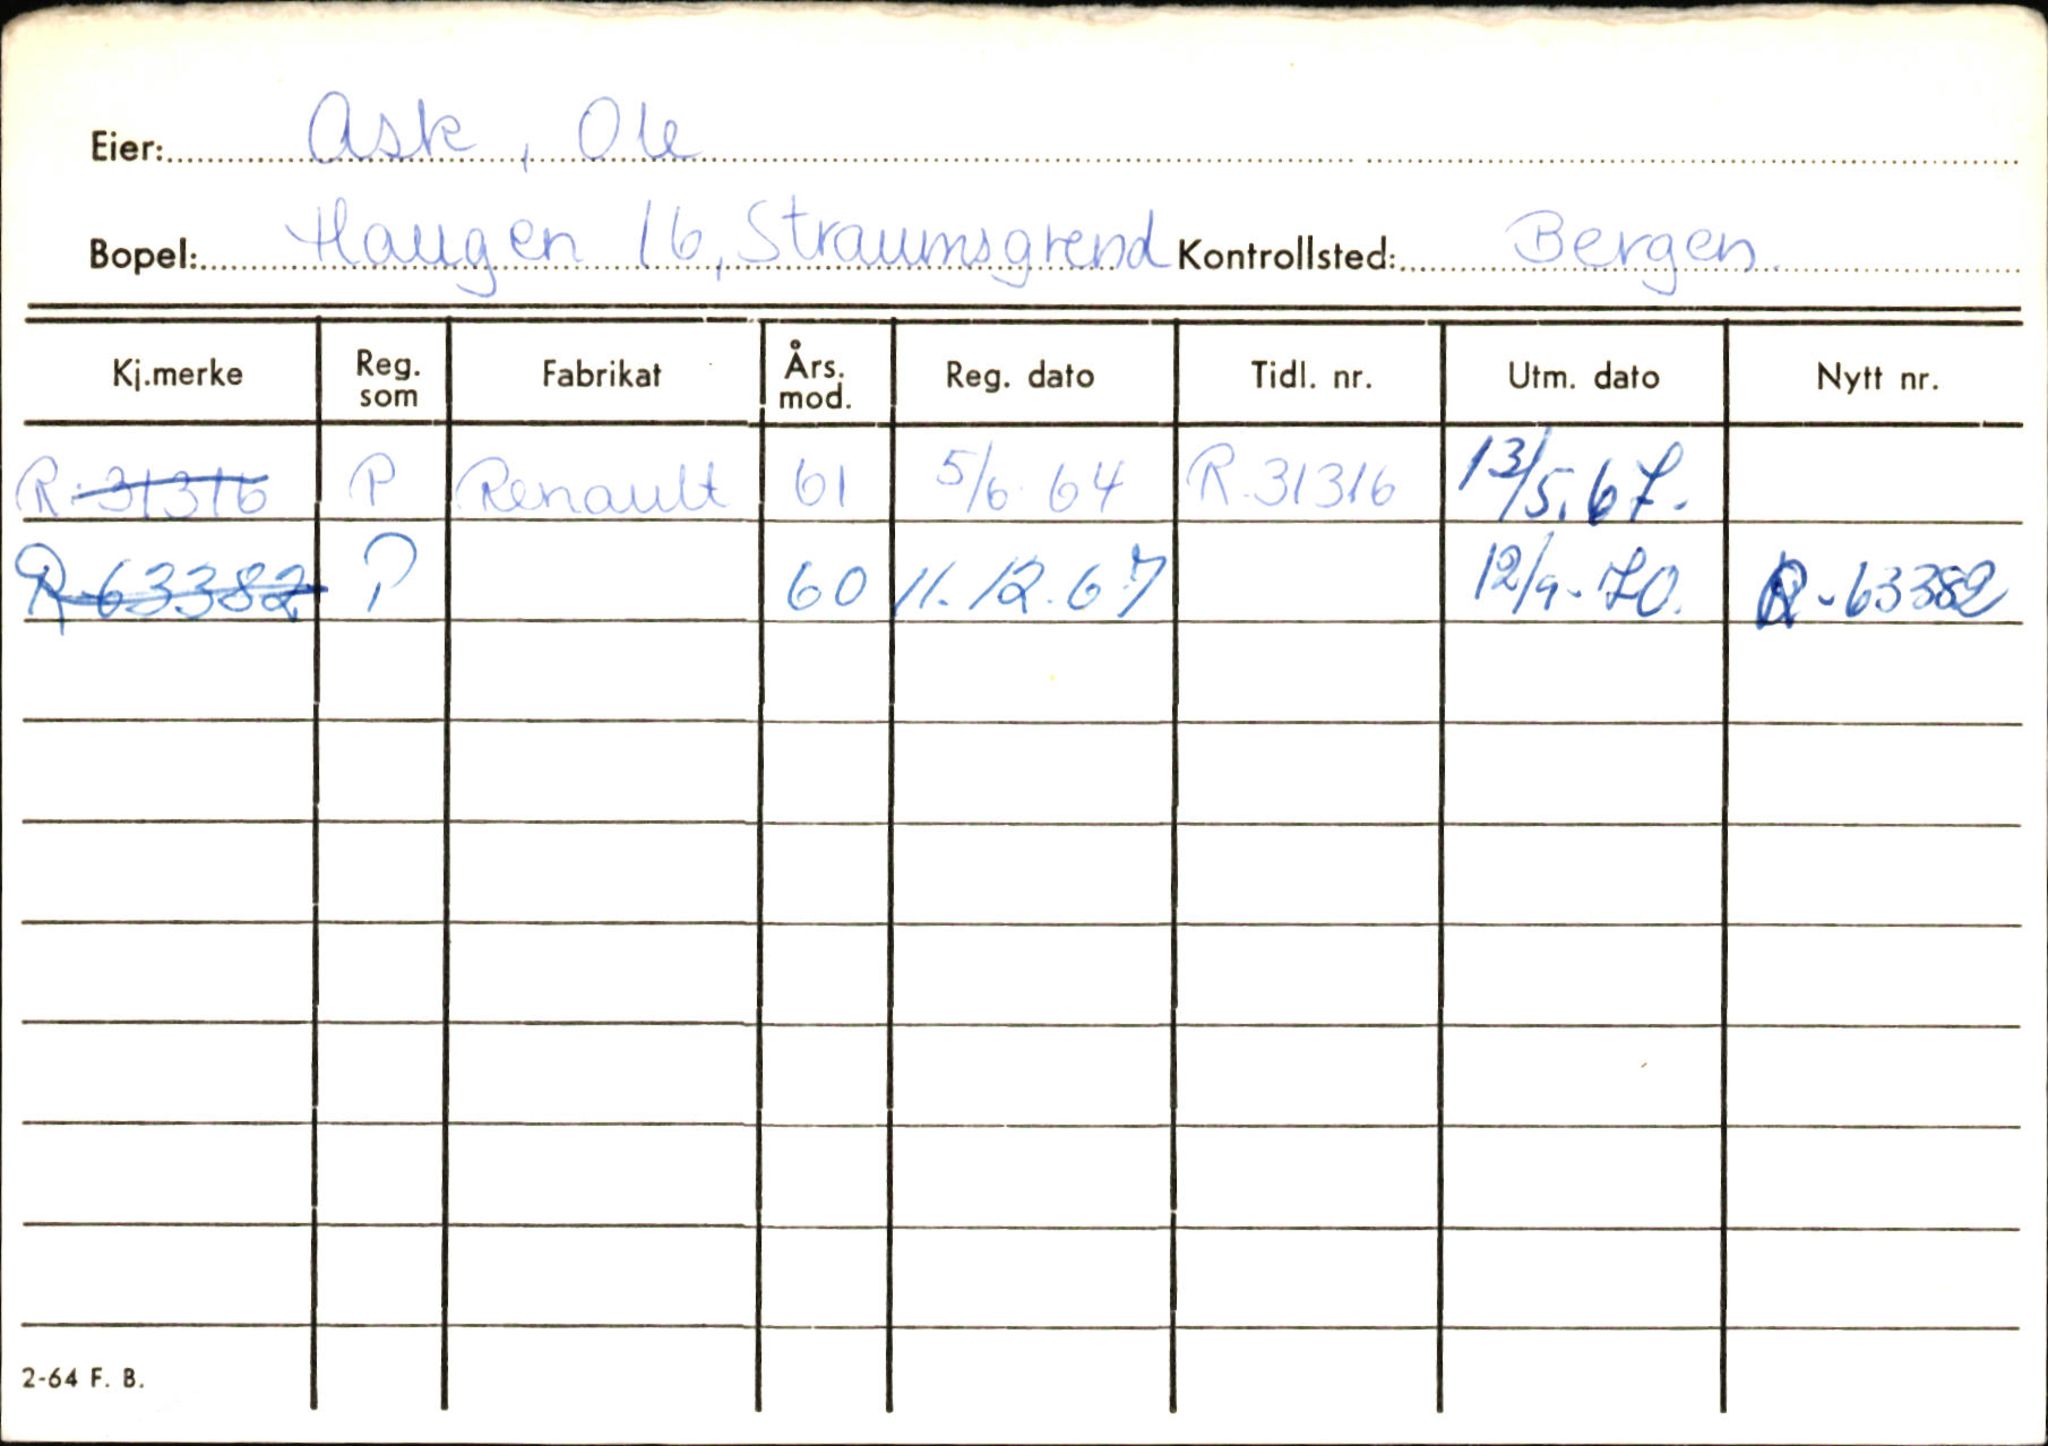 Eier: Ask, Ole
Bopel: Haugen 16, Straumsgrend Kontrollsted: Bergen.
Kj.merke Reg. som Fabrikat Års. mod. Reg. dato Tidl. nr. Utm. dato Nytt nr.
R-31316 P Renault 61 5/6 64 R-31316 13/5.67.
R-63382 P 60 11.12.67 12/9-70. R-63382
2-64 F. B.